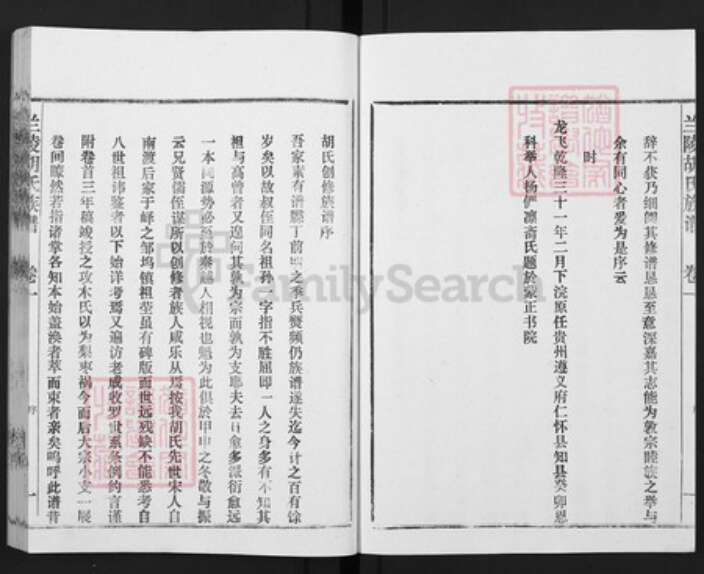 兰陵胡氏族谱 卷一 序
辞不获乃细阅其修谱恳恳至意深嘉其志能为敦宗睦族之举与
余有同心者爰为是序云
时
龙飞乾隆三十一年二月下浣原任贵州遵义府仁怀县知县癸卯恩
科举人杨 斋氏题於蒙正书院
胡氏创修族谱序
吾家素有谱牒丁前明之季兵燹频仍族谱遂失迄今计之百有馀
岁矣以故叔侄同名祖孙一字指不胜屈即一人之身多有不知其
祖与高曾者又遑问其孰为宗而孰为支耶夫去日愈多派衍愈远
一本同源势必至於秦越人相视也魁为此俱於甲申之冬敬与振
云兄贤儒侄谋所以创修者族人咸乐从焉按我胡氏先世宋人自
南渡后家于峄之邹坞镇祖茔虽有碑版而世远残缺不能悉考自
八世祖讳鉴者以下始详考焉又遍访老成收罗世系条例约言谨
附卷首三年稿竣授之攻木氏以为梨枣祸今而后大宗小支一展
卷间瞭然若指诸掌各知本始盖涣者萃而束者亲矣呜呼此谱昔
兰陵胡氏族谱 卷一 序 一
FamilySearch